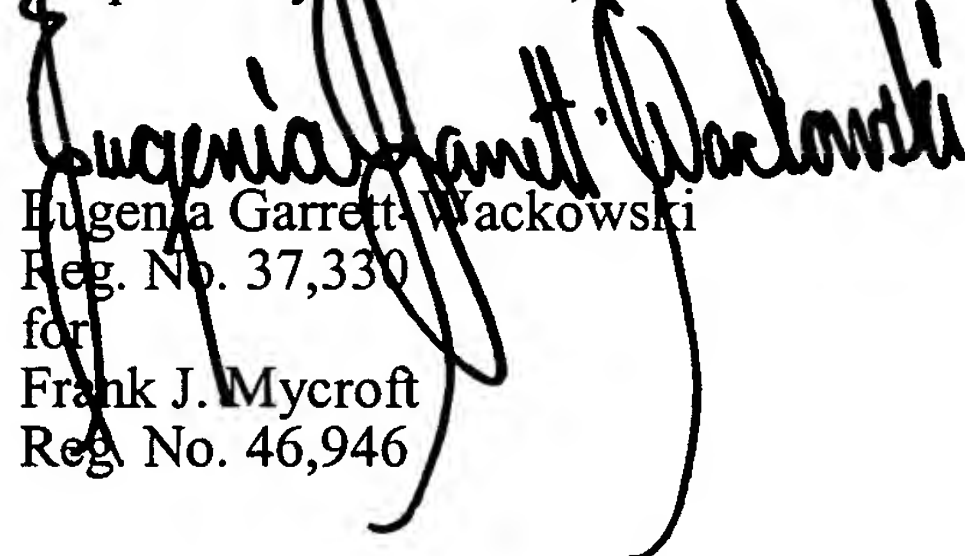 Eugenia Garrett-Wackowski
Eugenia Garrett-Wackowski
Reg. No. 37,330
for
Frank J. Mycroft
Reg. No. 46,946